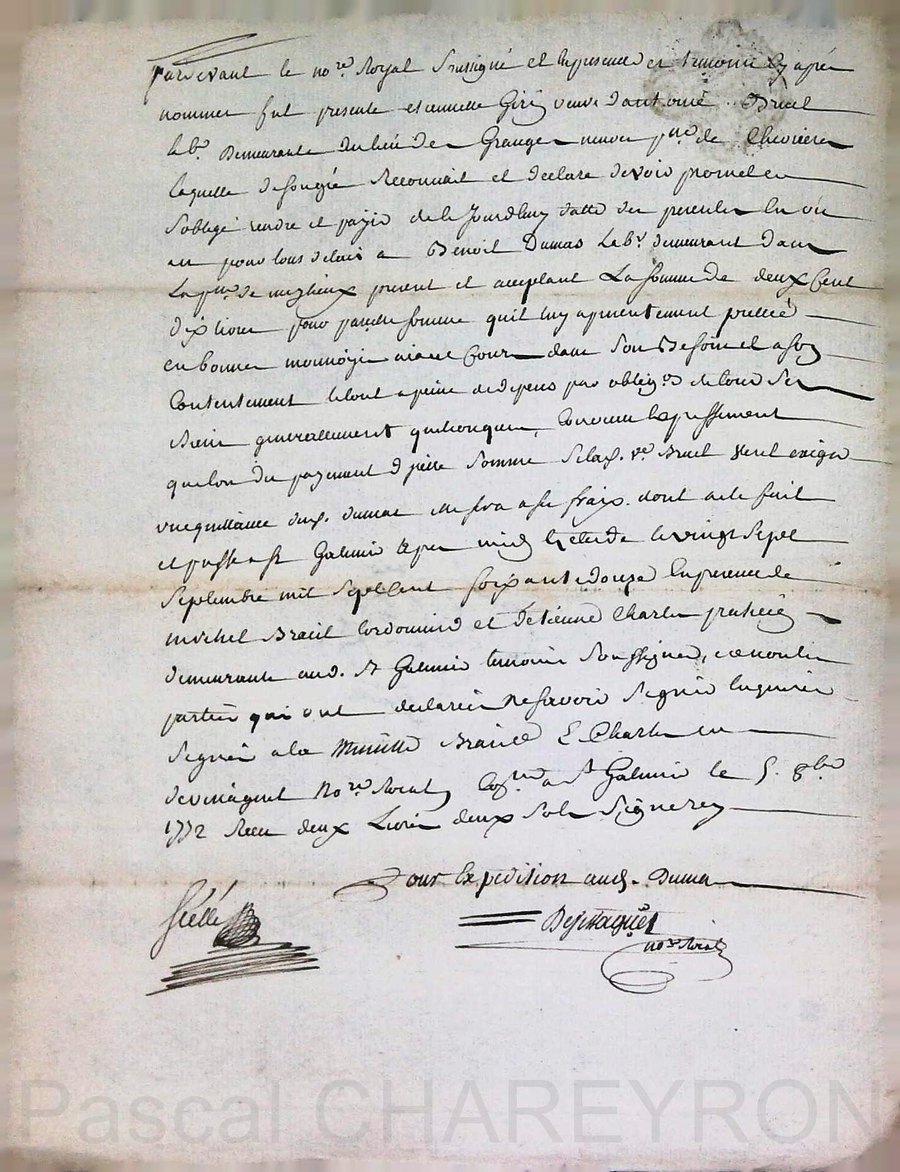 pardevant le no.re Royal soussigné et en presence des temoins cy apres
nommes fut presente estiennette Giri veuve d'antoine Bruel
lab.r Demeurante du lieu des Granges neuves p.sse de Chevrieres
laquelle de son gré Reconnait et declare devoir promet et
s'oblige rendre et payer de ce Jourdhuy datte des presentes En un
an pour tous delais a Benoit Dumas Lab.r demeurant dans
La p.sse de present et acceptant La somme de deux Cent
dix livres pour pareille somme qu'il luy a presentement pretté
en bonnes monnoye aiant Cour dans son Besoin et a son
Contentement le tout a peine de depens par oblig.on de tous ses
Biens generallement quelconques, Convenu Expressement
que lors du payement de d.ette somme Si lad. v.e Bruel Veut exiger
une quittance dud. dumas elle sera a ses fraix. dont acte fait
et passé a St Galmier apres midy Etude le vingt Sept
Septembre mil Sept Cent soixante douze En presence de
michel Brait Cordonnier et d'etienne Charles praticien
demeurants aud. St Galmier temoins Soussignes, et non les
parties qui ont declarées ne scavoir signer Enquises
Signés a la Minutte Brait E Charles et
desmaguet No.re Royal Con.llé a St Galmier le 5. 8bre
1772 Receu deux Livres deux Sols Signe rey
Pour Expedition aud. Dumas
Scellé
Desmaguet
no.re Royal
Pascal CHAREYRON